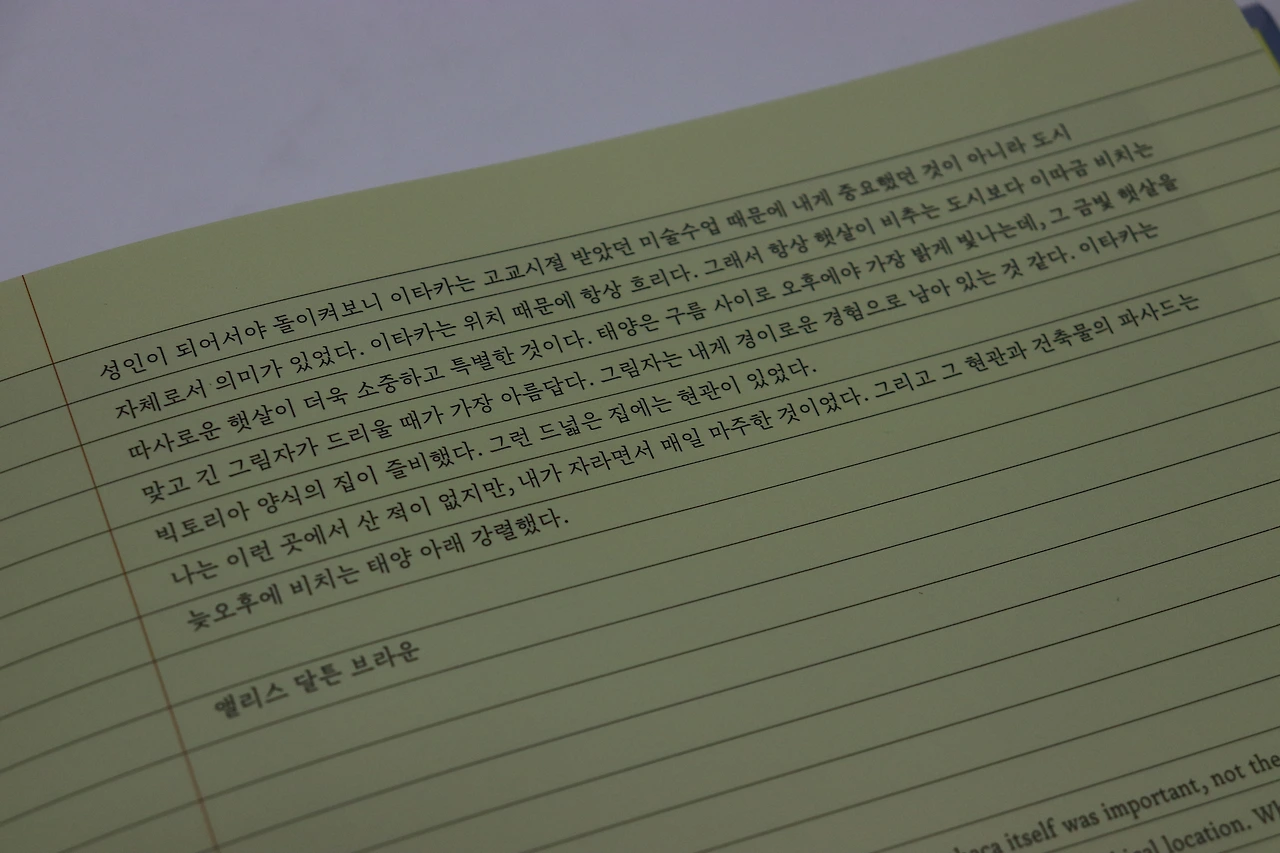 성인이 되어서야 돌이켜보니 이타카는 고교시절 받았던 미술수업 때문에 내게 중요했던 것이 아니라 도시
자체로서 의미가 있었다. 이타카는 위치 때문에 항상 흐리다. 그래서 항상 햇살이 비추는 도시보다 이따금 비치는
따사로운 햇살이 더욱 소중하고 특별한 것이다. 태양은 구름 사이로 오후에야 가장 밝게 빛나는데, 그 금빛 햇살을
맞고 긴 그림자가 드리울 때가 가장 아름답다. 그림자는 내게 경이로운 경험으로 남아 있는 것 같다. 이타카는
빅토리아 양식의 집이 즐비했다. 그런 드넓은 집에는 현관이 있었다.
나는 이런 곳에서 산 적이 없지만, 내가 자라면서 매일 마주한 것이었다. 그리고 그 현관과 건축물의 파사드는
늦오후에 비치는 태양 아래 강렬했다.
앨리스 달튼 브라운
itself was important, not the
location.